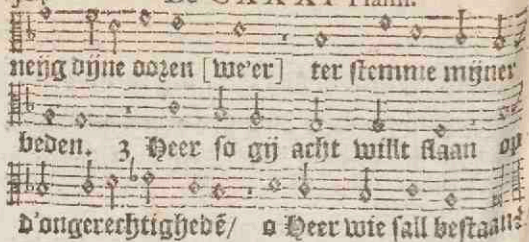 De CXXX Psalm.
neijg dijne oozen [we'er] ter stemme mijner
beden. 3 Heer so gij acht willt slaan op
d'ongerechtighedē/ o Heer wie sall bestaan?